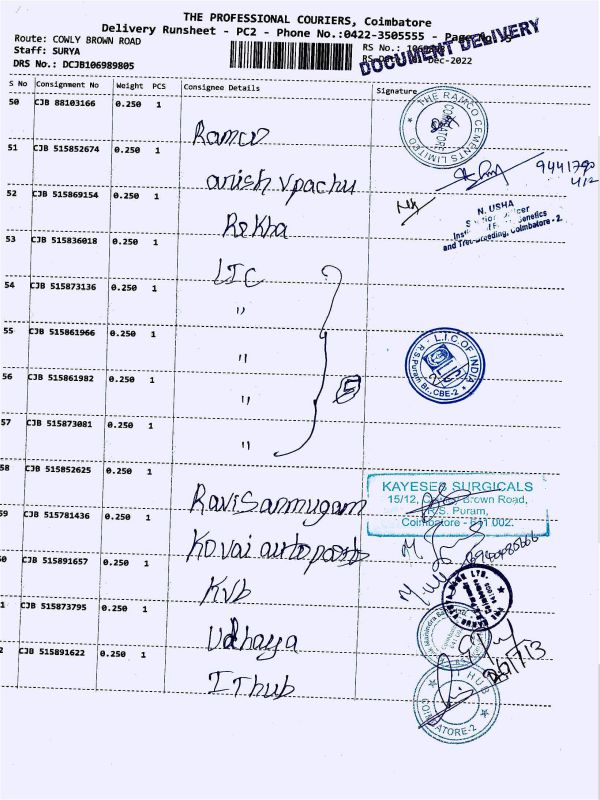 THE PROFESSIONAL COURIERS, Coimbatore
Delivery Runsheet - PC2 - Phone No.:0422-3505555 - Page
Route: COWLY BROWN ROAD
Staff: SURYA
DRS No.: DCJB106989805
RS No.:
-Dec-2022
DOCUMENT DELIVERY
S No Consignment No Weight PCS Consignee Details Signature
50 CJB 88103166 0.250 1 Ramco
THE RAMCO CEMENTS LIMITED
COIMBATORE
51 CJB 515852674 0.250 1 anish vpachu
9441790
4/2
52 CJB 515869154 0.250 1 Rekha
N. USHA
Genetics
and Tree Breeding, Coimbatore - 2.
53 CJB 515836018 0.250 1 LIC
54 CJB 515873136 0.250 1 "
55 CJB 515861966 0.250 1 "
L.I.C OF INDIA
R.S.Puram Br., CBE-2
56 CJB 515861982 0.250 1 "
5
57 CJB 515873081 0.250 1 "
58 CJB 515852625 0.250 1 Ravisanmugam
KAYESES SURGICALS
15/12, Brown Road,
R.S. Puram,
Coimbatore - 641 002.
59 CJB 515781436 0.250 1 Kovai autoparts
0 CJB 515891657 0.250 1 KVb
1 CJB 515873795 0.250 1 Udhaya
2 CJB 515891622 0.250 1 IThub
HUB
COIMBATORE-2